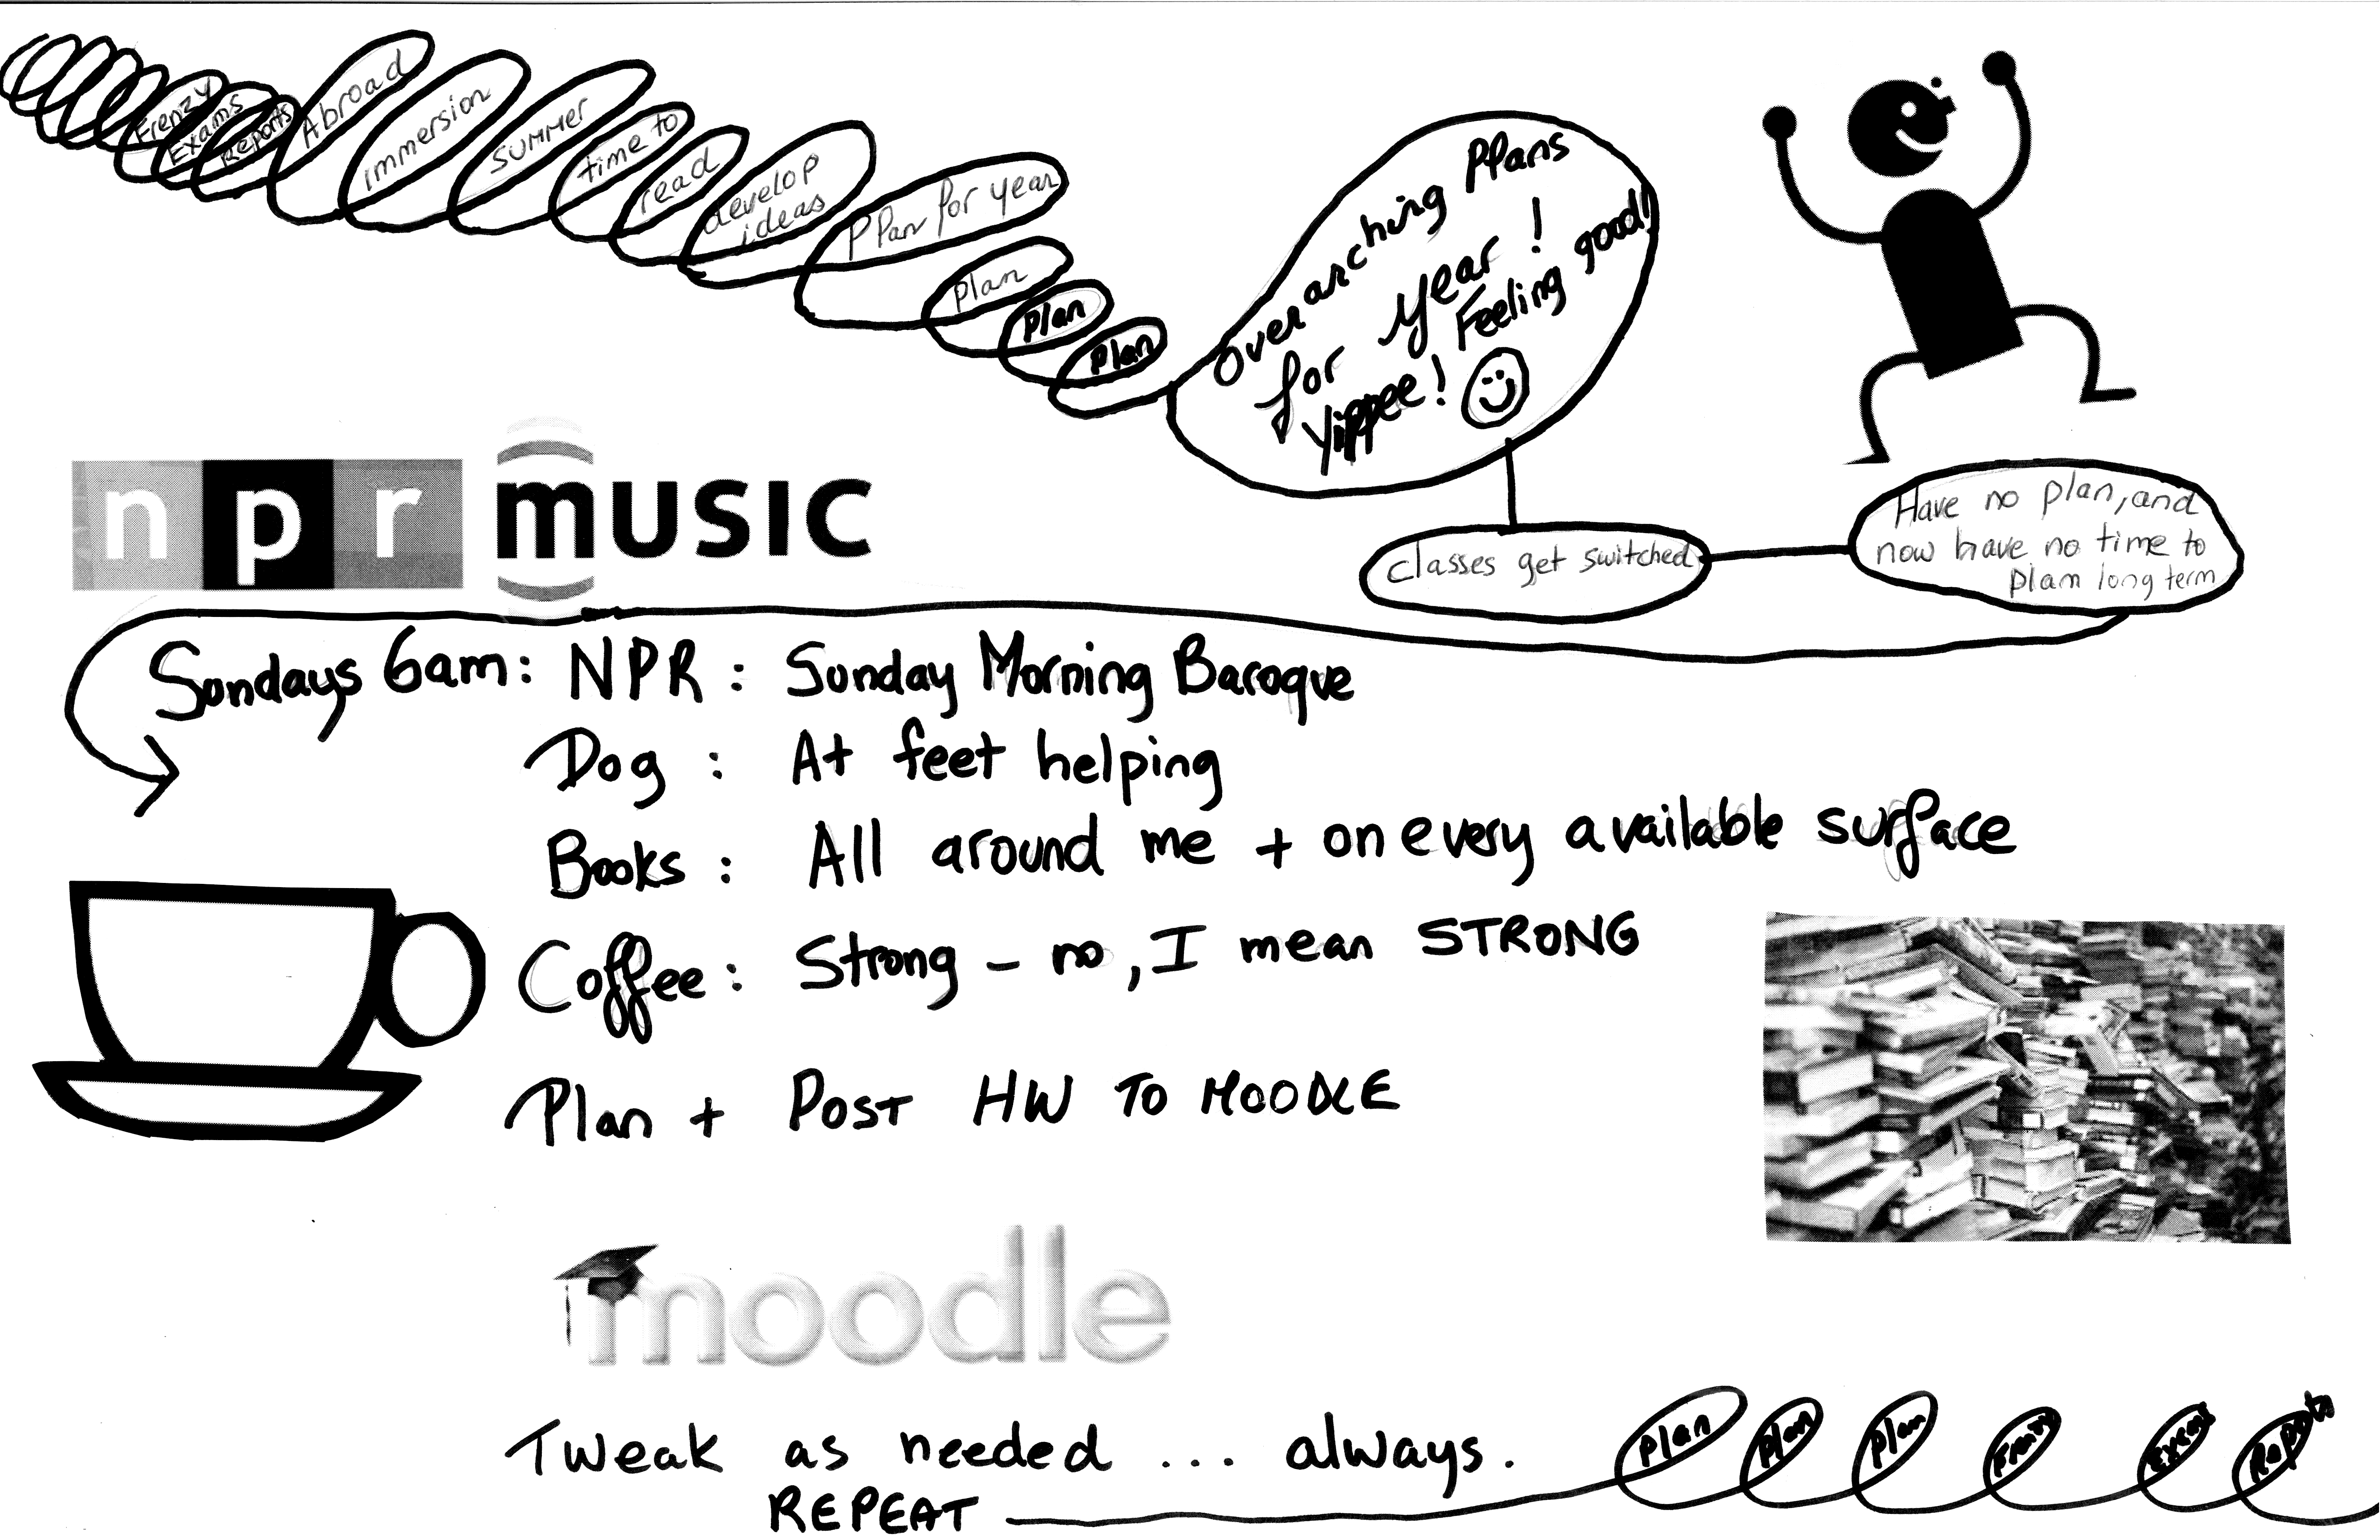 Frenzy
Exams
Reports
Abroad
immersion
summer
time to
read
develop
ideas
Plan for year
plan
plan
plan
Overarching Plans
for year!
Yippee! Feeling good!
classes get switched
Have no plan, and
now have no time to
plan long term
npr music
Sundays 6am: NPR: Sunday Morning Baroque
Dog: At feet helping
Books: All around me + on every available surface
Coffee: Strong - no, I mean STRONG
Plan + POST HW TO MOODLE
moodle
Tweak as needed ... always.
REPEAT
Plan
Plan
Plan
Frenzy
Exams
Reports